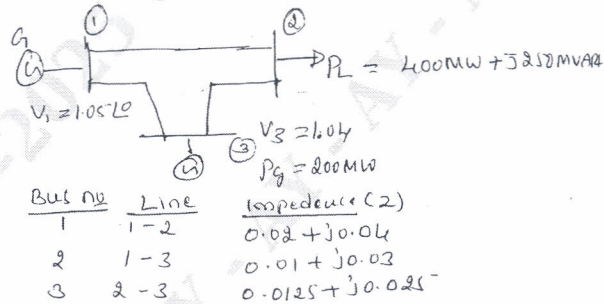 ① ②
G
G
PL = 400MW + j250MVAR
V1 = 1.05∠0
③ V3 = 1.04
G
Pg = 200MW
Bus no Line Impedence (2)
1 1-2 0.02 + j0.04
2 1-3 0.01 + j0.03
3 2-3 0.0125 + j0.025